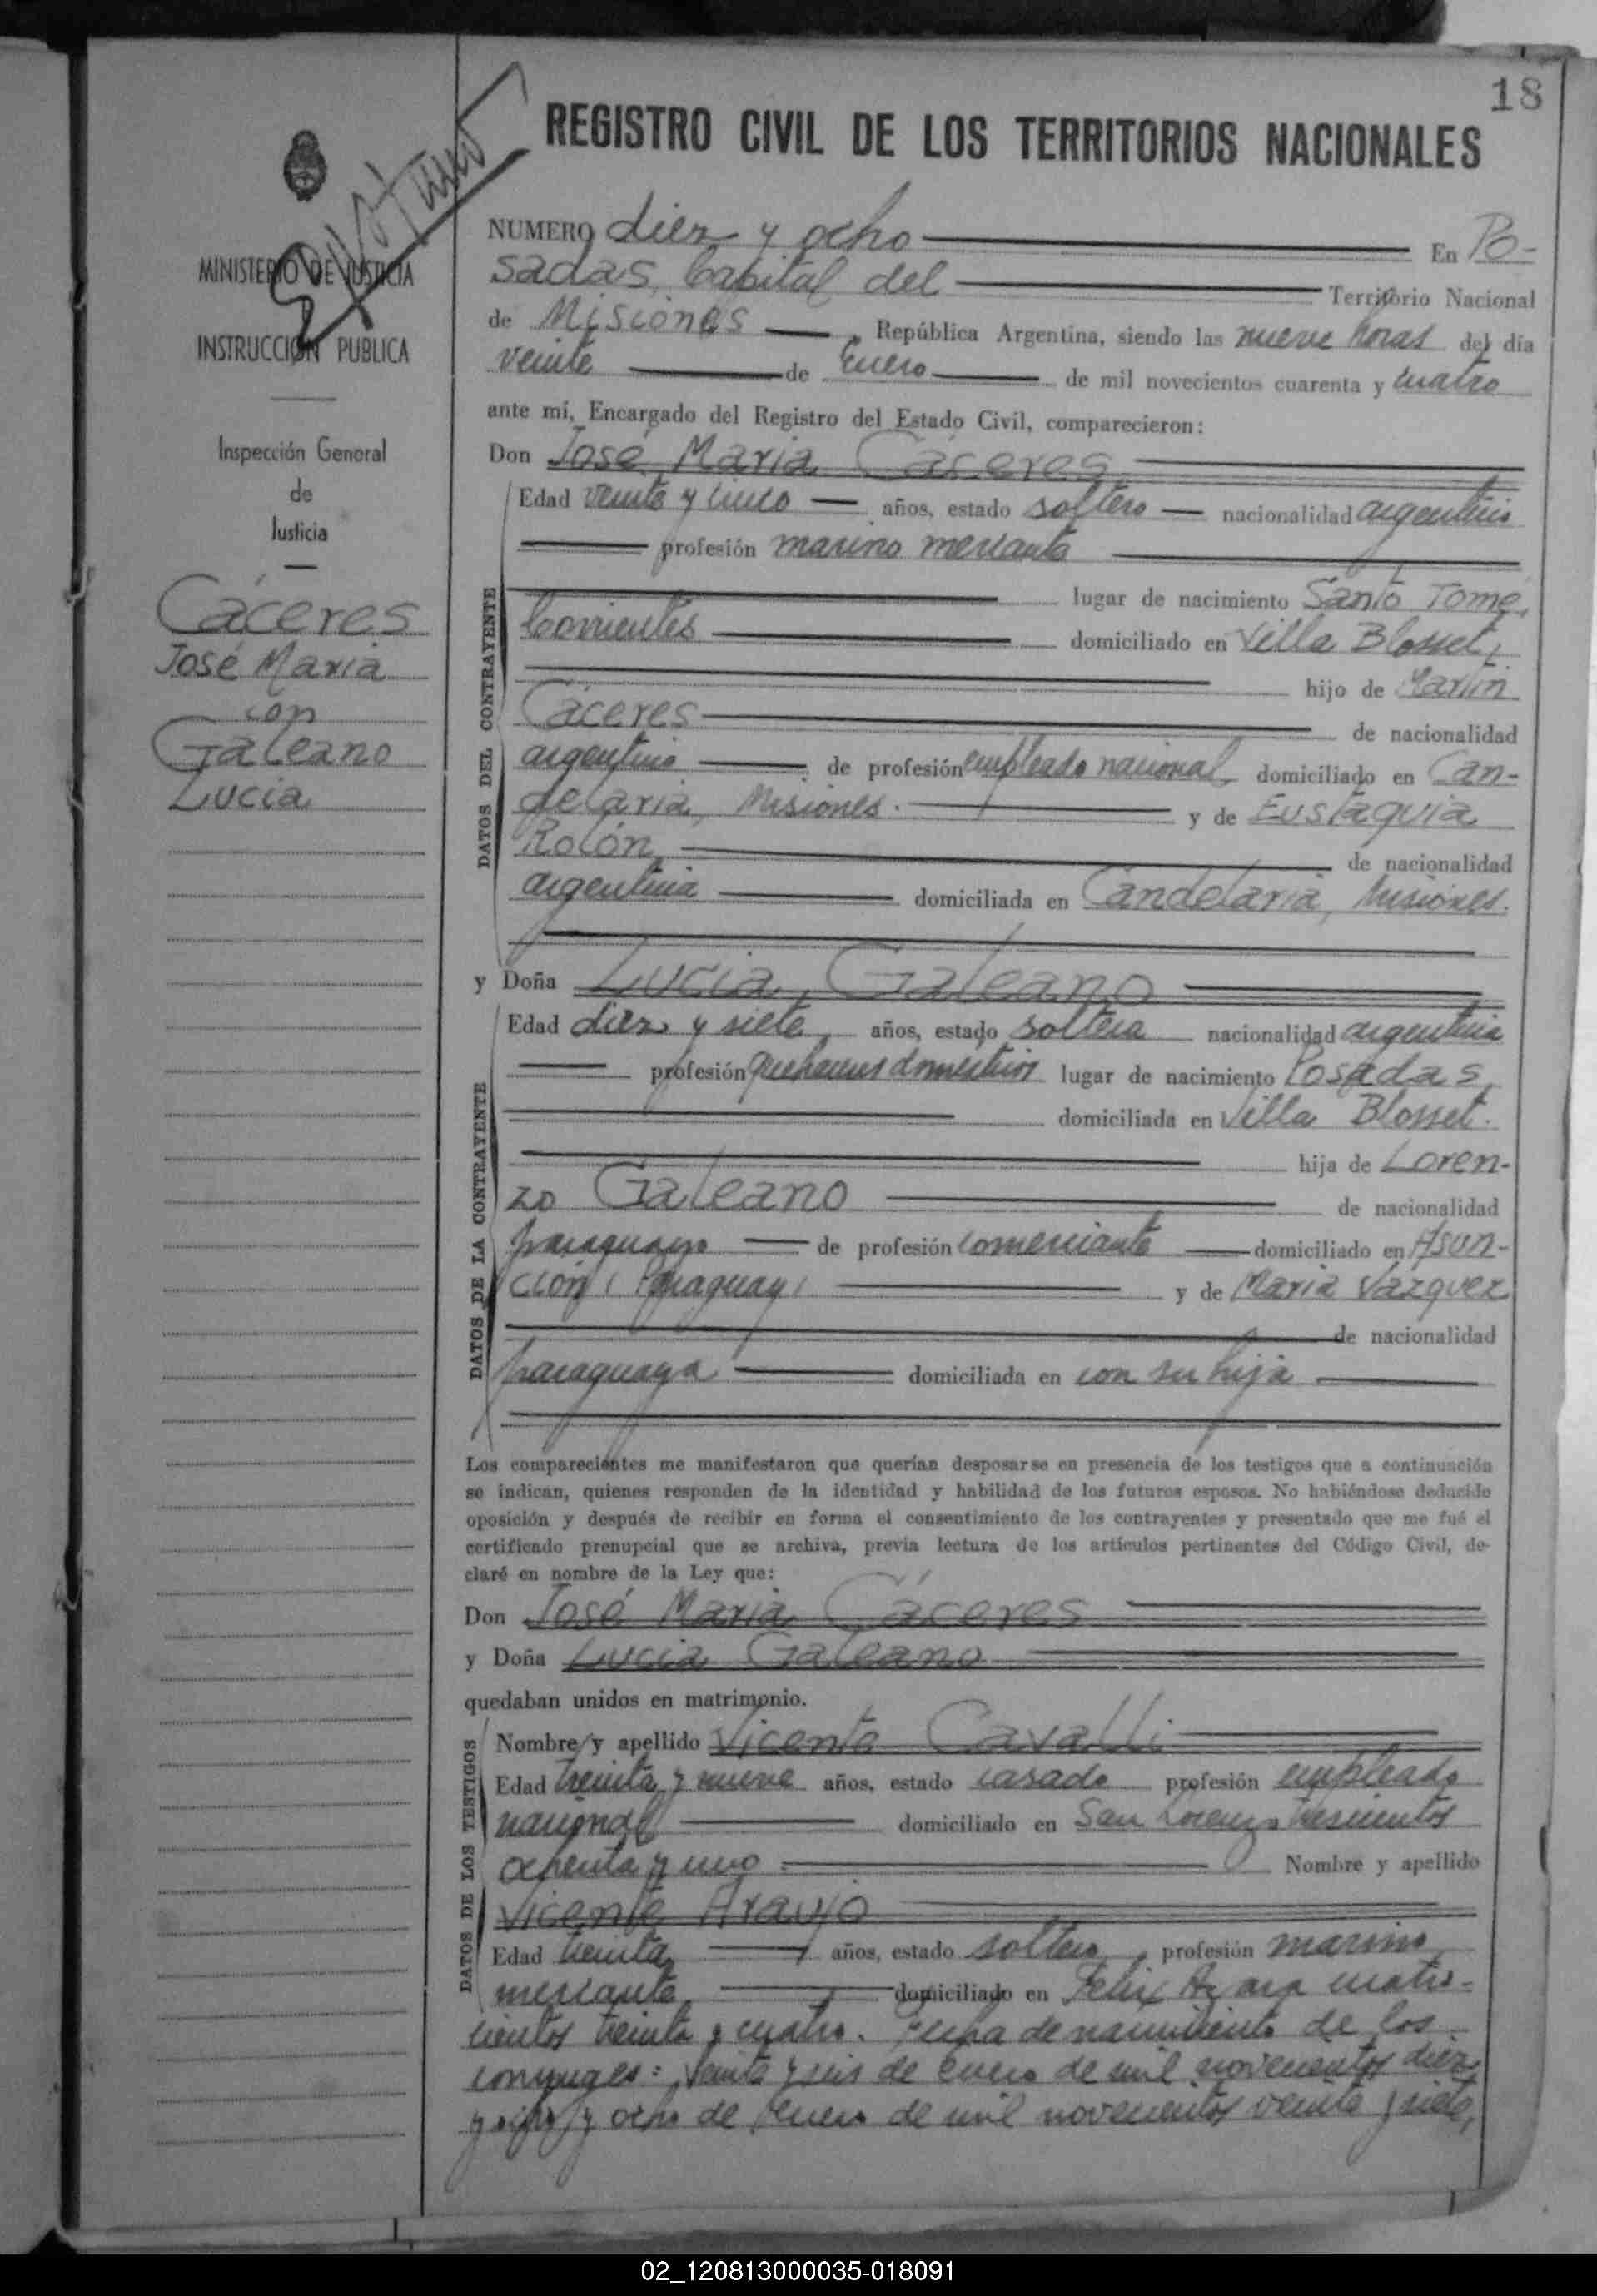 18
REGISTRO CIVIL DE LOS TERRITORIOS NACIONALES
MINISTERIO DE JUSTICIA
INSTRUCCIÓN PUBLICA
Inspección General
de
Justicia
Cáceres
José Maria
con
Galeano
Lucia
NUMERO diez y ocho En Po-
sadas, Capital del Territorio Nacional
de Misiones, República Argentina, siendo las nueve horas del día
veinte de Enero de mil novecientos cuarenta y cuatro
ante mí, Encargado del Registro del Estado Civil, comparecieron:
Don José Maria Cáceres
DATOS DEL CONTRAYENTE
Edad veinte y cinco años, estado soltero nacionalidad argentino
profesión marino mercante
lugar de nacimiento Santo Tomé,
Corrientes domiciliado en Villa Blosset,
hijo de Martín
Cáceres de nacionalidad
argentino de profesión empleado nacional domiciliado en Can-
delaria, Misiones. y de Eustaquia
Rolón de nacionalidad
argentina domiciliada en Candelaria, Misiones.
y Doña Lucia Galeano
DATOS DE LA CONTRAYENTE
Edad diez y siete, años, estado soltera nacionalidad argentina
profesión quehaceres domésticos lugar de nacimiento Posadas,
domiciliada en Villa Blosset.
hija de Loren-
zo Galeano de nacionalidad
paraguayo de profesión comerciante domiciliado en Asun-
ción (Paraguay) y de Maria Vazquez
de nacionalidad
paraguaya domiciliada en con su hija
Los comparecientes me manifestaron que querían desposarse en presencia de los testigos que a continuación
se indican, quienes responden de la identidad y habilidad de los futuros esposos. No habiéndose deducido
oposición y después de recibir en forma el consentimiento de los contrayentes y presentado que me fué el
certificado prenupcial que se archiva, previa lectura de los artículos pertinentes del Código Civil, de-
claré en nombre de la Ley que:
Don José Maria Cáceres
y Doña Lucia Galeano
quedaban unidos en matrimonio.
DATOS DE LOS TESTIGOS
Nombre y apellido Vicente Cavalli
Edad treinta y nueve años, estado casado profesión empleado
nacional domiciliado en San Lorenzo trescientos
ochenta y uno Nombre y apellido
Vicente Araujo
Edad treinta años, estado soltero, profesión marino
mercante domiciliado en Felix Azara cuatro-
cientos treinta y cuatro. Fecha de nacimiento de los
conyuges: veinte y seis de enero de mil novecientos diez
y ocho y ocho de Enero de mil novecientos veinte y siete,
02_120813000035-018091